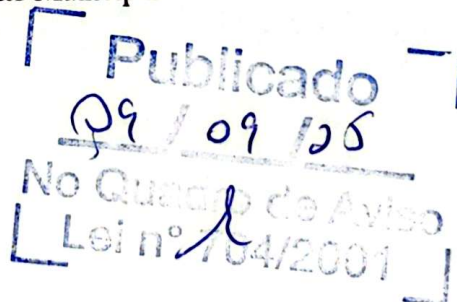 Publicado
/ 09 /
No Quadro de Aviso
Lei nº 704/2001